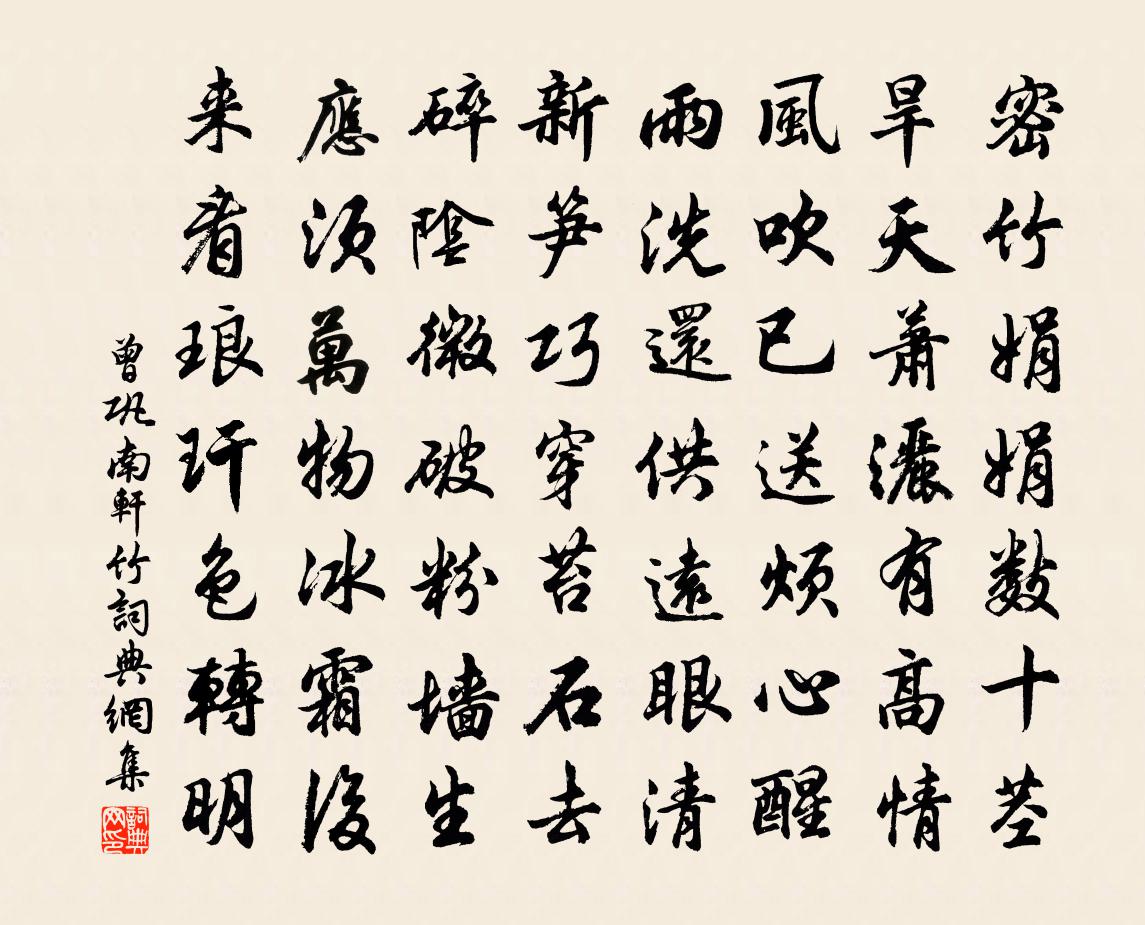 密竹娟娟數十莖
旱天蕭灑有高情
風吹已送煩心醒
雨洗還供遠眼清
新笋巧穿苔石去
碎陰微破粉墻生
應須萬物冰霜後
来看琅玕色轉明
曾巩南軒竹詞典網集
詞典网印